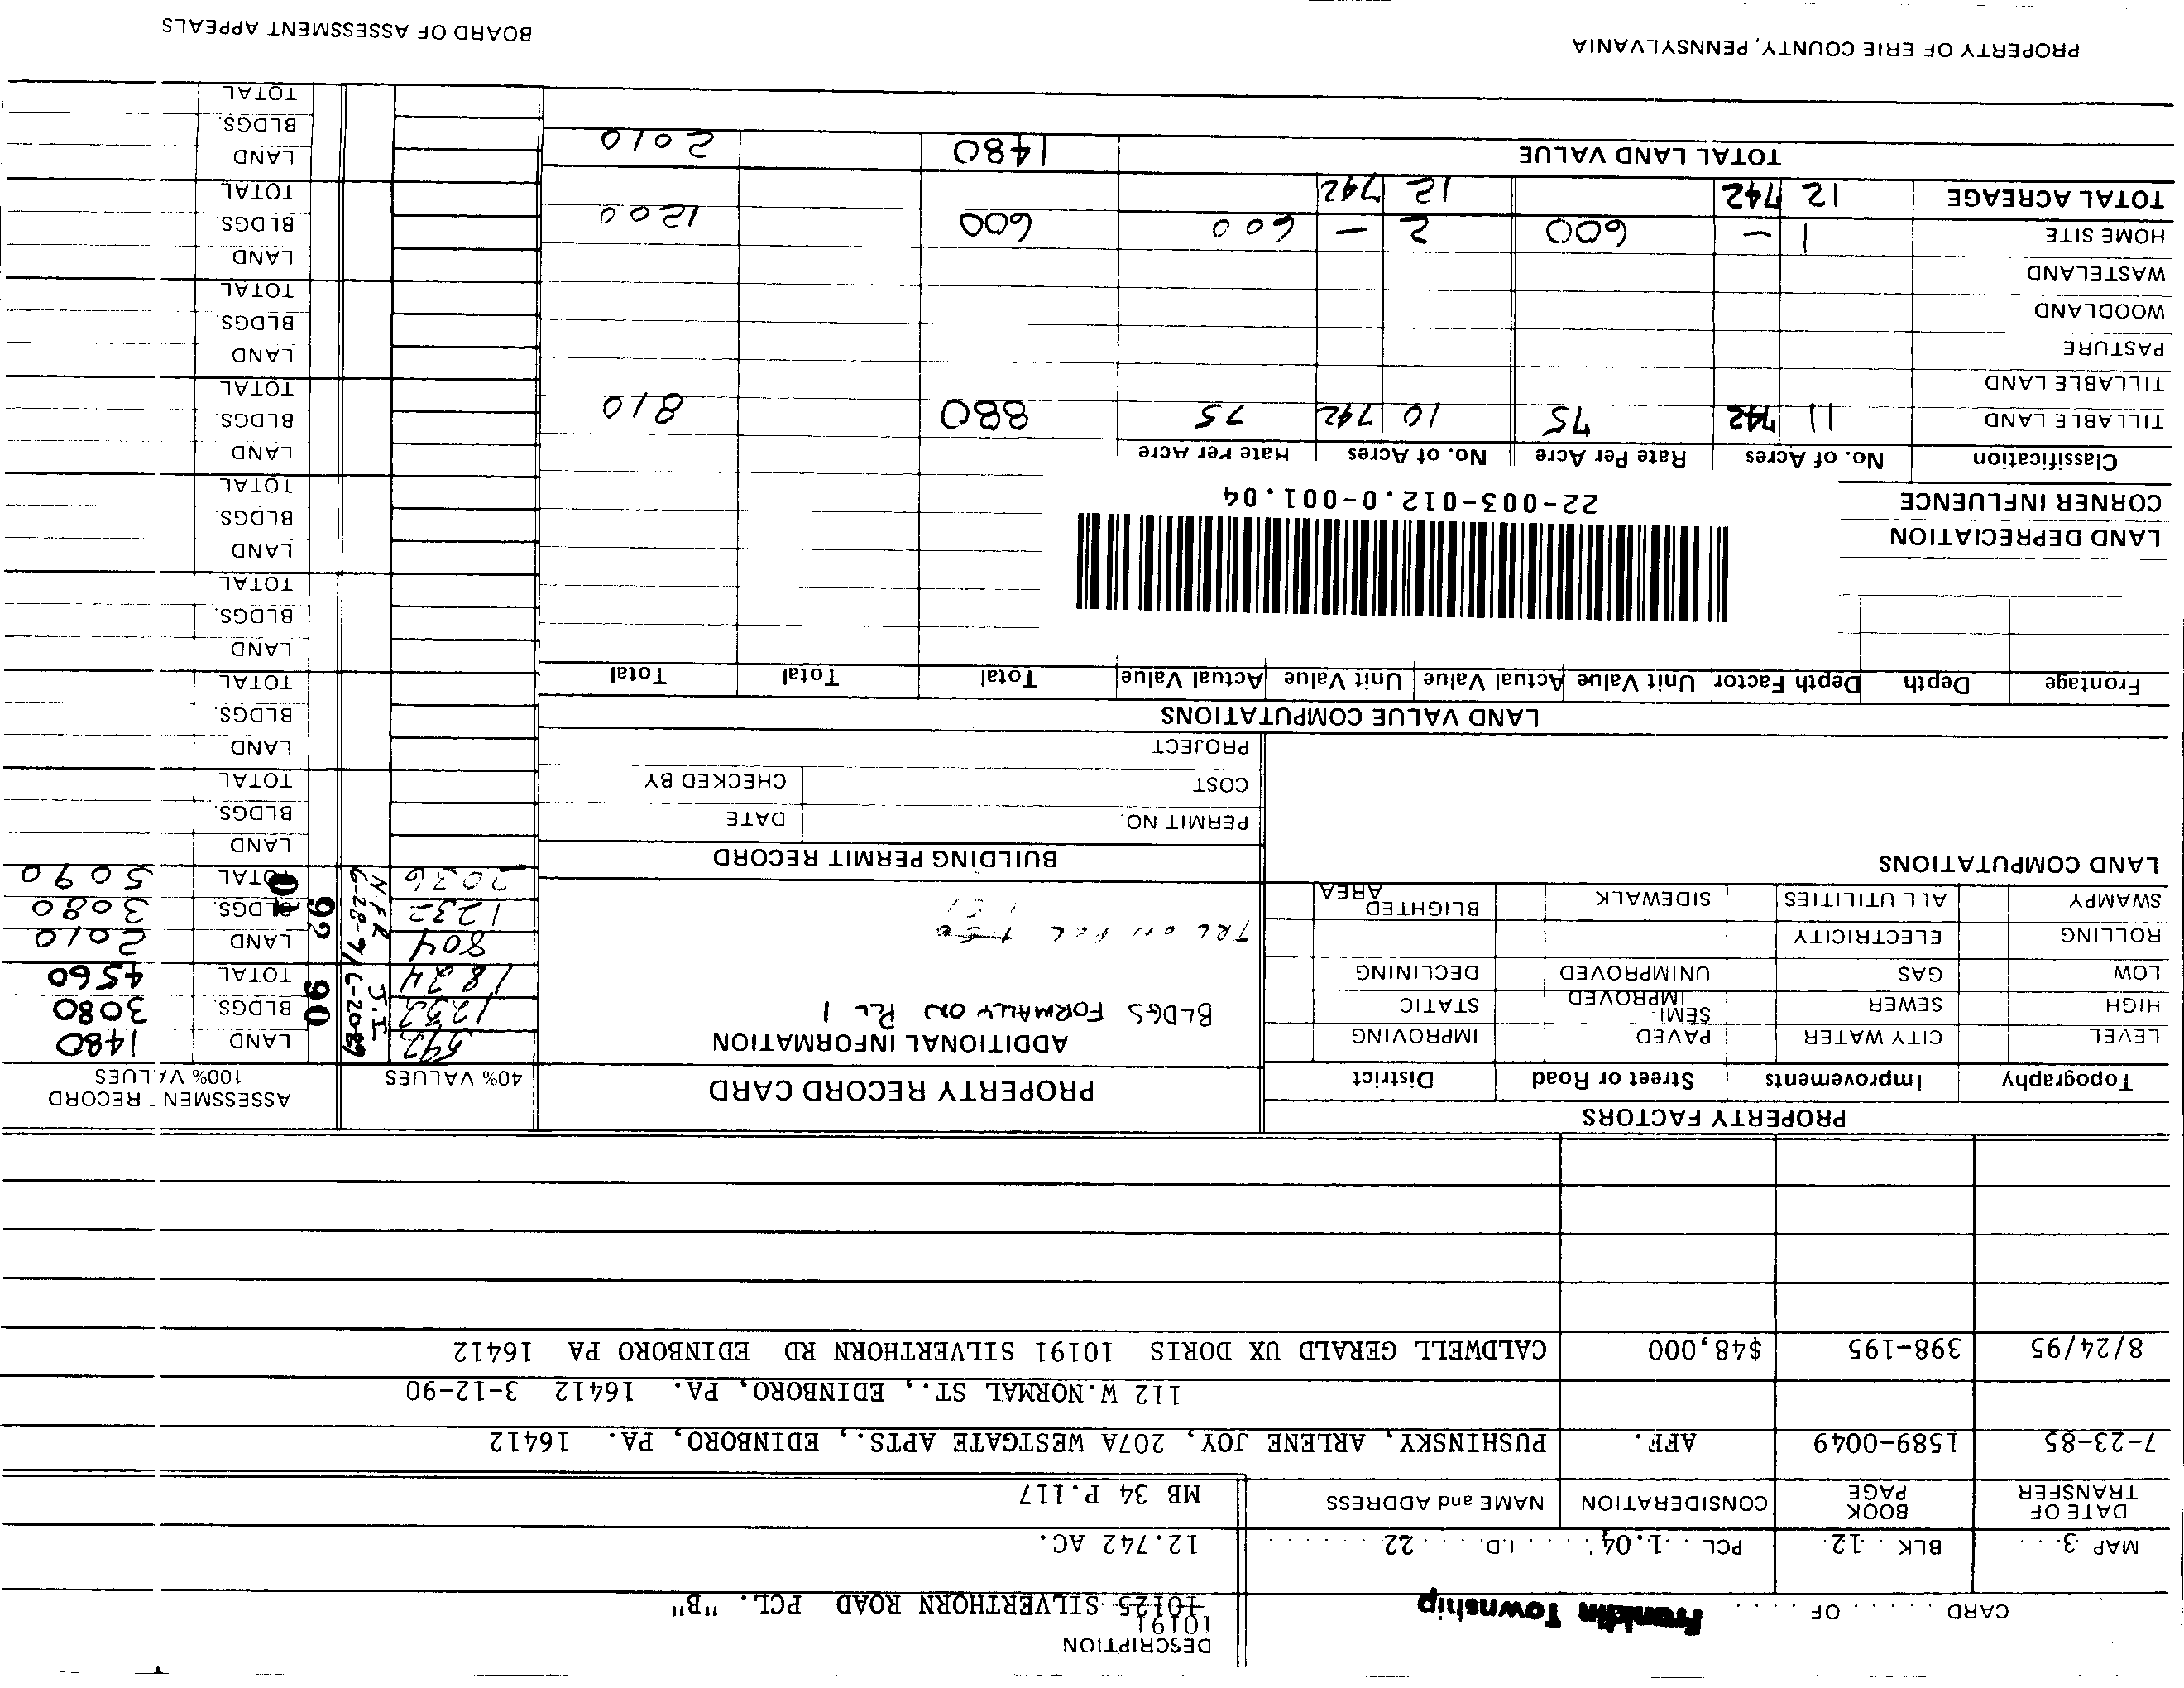 CARD . . . . . . OF . . . . . Franklin Township
DESCRIPTION
10191
10125 SILVERTHORN ROAD PCL. "B"
MAP 3 BLK 12 PCL 1.04 I.D. 22
12.742 AC.
MB 34 P.117
DATE OF TRANSFER BOOK PAGE CONSIDERATION NAME and ADDRESS
7-23-85 1589-0049 AFF. PUSHINSKY, ARLENE JOY, 207A WESTGATE APTS., EDINBORO, PA. 16412
112 W.NORMAL ST., EDINBORO, PA. 16412 3-12-90
8/24/95 398-195 $48,000 CALDWELL GERALD UX DORIS 10191 SILVERTHORN RD EDINBORO PA 16412
PROPERTY FACTORS
Topography Improvements Street or Road District
LEVEL CITY WATER PAVED IMPROVING
HIGH SEWER SEMI-IMPROVED STATIC
LOW GAS UNIMPROVED DECLINING
ROLLING ELECTRICITY
SWAMPY ALL UTILITIES SIDEWALK BLIGHTED AREA
LAND COMPUTATIONS
PROPERTY RECORD CARD
ADDITIONAL INFORMATION
BLDGS FORMALLY ON PCL 1
TRL ON PCL
BUILDING PERMIT RECORD
PERMIT NO. DATE
COST CHECKED BY
PROJECT
40% VALUES ASSESSMENT RECORD 100% VALUES
592 J.I 6-20-89 90 LAND 1480
1232 BLDGS. 3080
1824 TOTAL 4560
804 NFR 6-28-91 92 LAND 2010
1232 BLDGS. 3080
2036 01 TOTAL 5090
LAND
BLDGS.
TOTAL
LAND
BLDGS.
TOTAL
LAND
BLDGS.
TOTAL
LAND
BLDGS.
TOTAL
LAND
BLDGS.
TOTAL
LAND
BLDGS.
TOTAL
LAND
BLDGS.
TOTAL
LAND
BLDGS.
TOTAL
LAND VALUE COMPUTATIONS
Frontage Depth Depth Factor Unit Value Actual Value Unit Value Actual Value Total Total Total
LAND DEPRECIATION
CORNER INFLUENCE
22-003-012.0-001.04
Classification No. of Acres Rate Per Acre No. of Acres Rate Per Acre
TILLABLE LAND 11 742 75 10 742 75 880 810
TILLABLE LAND
PASTURE
WOODLAND
WASTELAND
HOME SITE 1 - 600 2 - 600 600 1200
TOTAL ACREAGE 12 742 12 742
TOTAL LAND VALUE 1480 2010
PROPERTY OF ERIE COUNTY, PENNSYLVANIA BOARD OF ASSESSMENT APPEALS